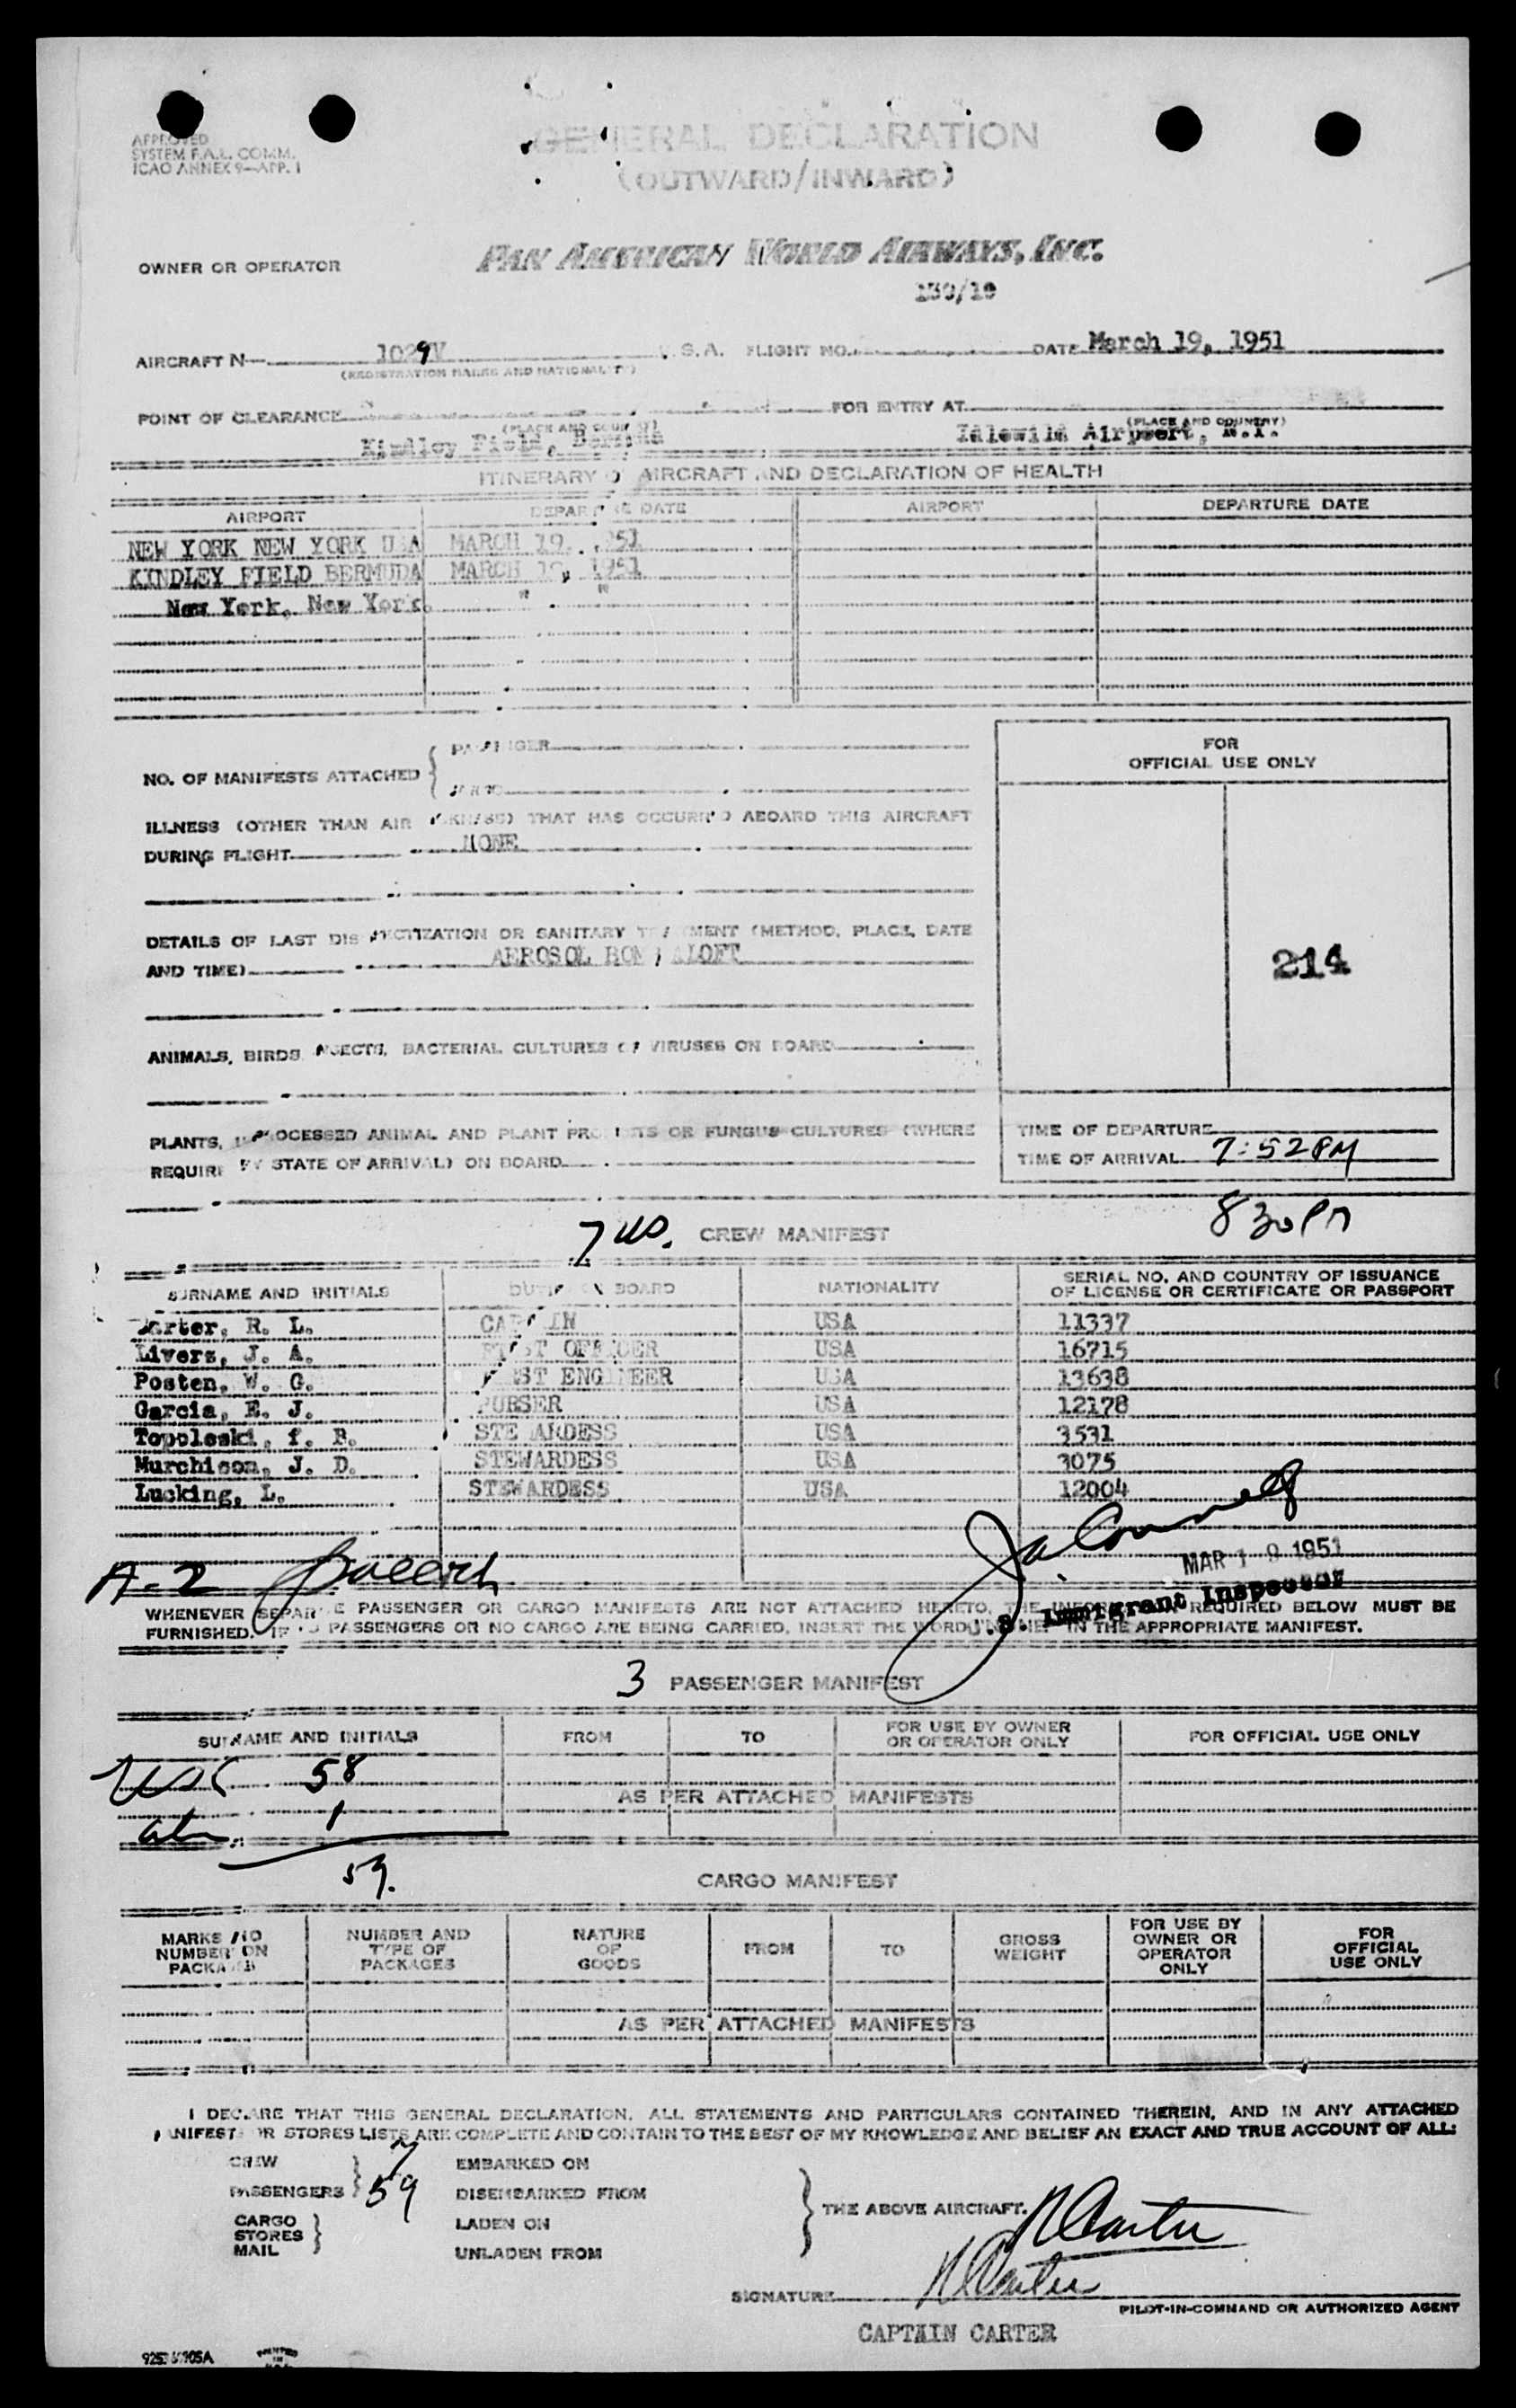 APPROVED
SYSTEM F.A.L. COMM.
ICAO ANNEX 9—APP. 1
GENERAL DECLARATION
(OUTWARD/INWARD)
OWNER OR OPERATOR PAN AMERICAN WORLD AIRWAYS, INC.
AIRCRAFT N— 1029V U.S.A. FLIGHT NO. DATE March 19, 1951
(REGISTRATION MARKS AND NATIONALITY)
POINT OF CLEARANCE FOR ENTRY AT
(PLACE AND COUNTRY) (PLACE AND COUNTRY)
Kindley Field, Bermuda Idlewild Airport, N.Y.
ITINERARY OF AIRCRAFT AND DECLARATION OF HEALTH
AIRPORT DEPARTURE DATE AIRPORT DEPARTURE DATE
NEW YORK NEW YORK USA MARCH 19, 1951
KINDLEY FIELD BERMUDA MARCH 19, 1951
New York, New York. " "
NO. OF MANIFESTS ATTACHED { PASSENGER
CARGO
ILLNESS (OTHER THAN AIR SICKNESS) THAT HAS OCCURRED ABOARD THIS AIRCRAFT
DURING FLIGHT NONE
DETAILS OF LAST DISINSECTIZATION OR SANITARY TREATMENT (METHOD, PLACE, DATE
AND TIME) AEROSOL BOMB ALOFT
ANIMALS, BIRDS, INSECTS, BACTERIAL CULTURES OR VIRUSES ON BOARD
PLANTS, UNPROCESSED ANIMAL AND PLANT PRODUCTS OR FUNGUS CULTURES (WHERE
REQUIRED BY STATE OF ARRIVAL) ON BOARD
FOR
OFFICIAL USE ONLY
214
TIME OF DEPARTURE
TIME OF ARRIVAL 7:52 PM
8 30 PM
7 US. CREW MANIFEST
SURNAME AND INITIALS DUTIES ON BOARD NATIONALITY SERIAL NO. AND COUNTRY OF ISSUANCE
OF LICENSE OR CERTIFICATE OR PASSPORT
Carter, R. L. CAPTAIN USA 11337
Livers, J. A. FIRST OFFICER USA 16715
Posten, W. G. FIRST ENGINEER USA 13638
Garcia, E. J. PURSER USA 12178
Topoleski, f. B. STEWARDESS USA 3531
Murchison, J. D. STEWARDESS USA 3075
Lucking, L. STEWARDESS USA 12004
A-2
MAR 19 1951
U.S. Immigrant Inspector
WHENEVER SEPARATE PASSENGER OR CARGO MANIFESTS ARE NOT ATTACHED HERETO, THE INFORMATION REQUIRED BELOW MUST BE
FURNISHED. IF NO PASSENGERS OR NO CARGO ARE BEING CARRIED, INSERT THE WORD "NONE" IN THE APPROPRIATE MANIFEST.
3 PASSENGER MANIFEST
SURNAME AND INITIALS FROM TO FOR USE BY OWNER
OR OPERATOR ONLY FOR OFFICIAL USE ONLY
USC 58
AS PER ATTACHED MANIFESTS
1
59.
CARGO MANIFEST
MARKS AND
NUMBER ON
PACKAGES
NUMBER AND
TYPE OF
PACKAGES
NATURE
OF
GOODS
FROM
TO
GROSS
WEIGHT
FOR USE BY
OWNER OR
OPERATOR
ONLY
FOR
OFFICIAL
USE ONLY
AS PER ATTACHED MANIFESTS
I DECLARE THAT THIS GENERAL DECLARATION, ALL STATEMENTS AND PARTICULARS CONTAINED THEREIN, AND IN ANY ATTACHED
MANIFEST OR STORES LISTS ARE COMPLETE AND CONTAIN TO THE BEST OF MY KNOWLEDGE AND BELIEF AN EXACT AND TRUE ACCOUNT OF ALL:
CREW 7 EMBARKED ON
PASSENGERS 59 DISEMBARKED FROM
CARGO LADEN ON
STORES
MAIL UNLADEN FROM
THE ABOVE AIRCRAFT. R Carter
SIGNATURE R Carter
PILOT-IN-COMMAND OR AUTHORIZED AGENT
CAPTAIN CARTER